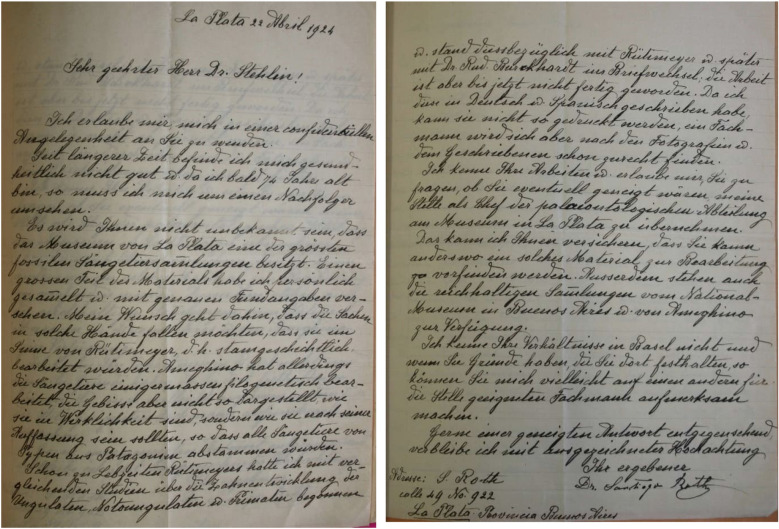 La Plata 22 Abril 1924
Sehr geehrter Herr Dr. Stehlin!
Ich erlaube mir, mich in einer confidentiellen
Angelegenheit an Sie zu wenden.
Seit längerer Zeit befinde ich mich gesund-
heitlich nicht gut & da ich bald 74 Jahre alt
bin, so muss ich mich um einen Nachfolger
umsehen.
Es wird Ihnen nicht unbekannt sein, dass
das Museum von La Plata eine der grössten
fossilen Säugetiersam̄lungen besitzt. Einen
grossen Teil des Materials habe ich persönlich
gesam̄elt & mit genauen Fundangaben ver-
sehen. Mein Wunsch geht dahin, dass die Sachen
in solche Hände fallen möchten, dass sie im
Sinne von Rütimeyer, d. h. stam̄geschichtlich
bearbeitet würden. Ameghino hat allerdings
die Säugetiere einigermassen filogenetisch bear-
beitet, die Gebisse aber nicht so dargestellt, wie
sie in Wirklichkeit sind, sondern wie sie nach seiner
Auffassung sein sollten, so dass alle Säugetiere von
Typen aus Patagonien abstammen würden.
Schon zu Lebzeiten Rütimeyers hatte ich mit ver-
gleichenden Studien über die Zahnentwicklung der
Ungulaten, Notoungulaten & Primaten begonnen
& stand diesbezüglich mit Rütimeyer & später
mit Dr. Rud. Burckhardt im Briefwechsel; die Arbeit
ist aber bis jetzt nicht fertig geworden. Da ich
dies in Deutsch & Spanisch geschrieben habe,
kann sie nicht so gedruckt werden, ein Fach-
mann wird sich aber nach den Fotografien &
dem Geschriebenen schon zurecht finden.
Ich kenne Ihre Arbeiten & erlaube mir, Sie zu
fragen, ob Sie eventuell geneigt wären, meine
Stelle als Chef der palaeontologischen Abteilung
am Museum in La Plata zu übernehmen.
Das kann ich Ihnen versichern, dass Sie kaum
anderswo ein solches Material zur Bearbeitung
vorfinden werden. Ausserdem stehen auch
die reichhaltigen Sam̄lungen vom National-
Museum in Buenos Aires & von Ameghino
zur Verfügung.
Ich kenne Ihre Verhältnisse in Basel nicht und
wenn Sie Gründe haben, die Sie dort festhalten, so
können Sie mich vielleicht auf einen andern für
die Stelle geeigneten Fachmann aufmerksam
machen.
Gerne einer geneigten Antwort entgegensehend
verbleibe ich mit ausgezeichneter Hochachtung
Ihr ergebener
Dr. Santiago Roth
Adresse: S. Roth
calle 49 No. 922
La Plata Provincia Buenos Aires